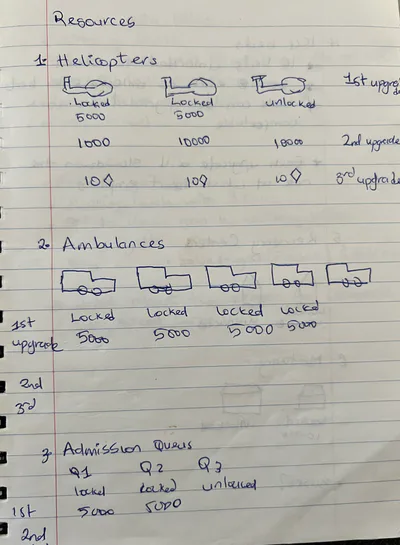 Resources
1. Helicopters
Locked Locked unlocked 1st upgrade
5000 5000
1000 10000 10000 2nd upgrade
10◊ 10◊ 10◊ 3rd upgrade
2. Ambulances
1st Locked Locked Locked Locked
upgrade 5000 5000 5000 5000
2nd
3rd
3. Admission Queus
Q1 Q2 Q3
locked Locked unlocked
1st 5000 5000
2nd